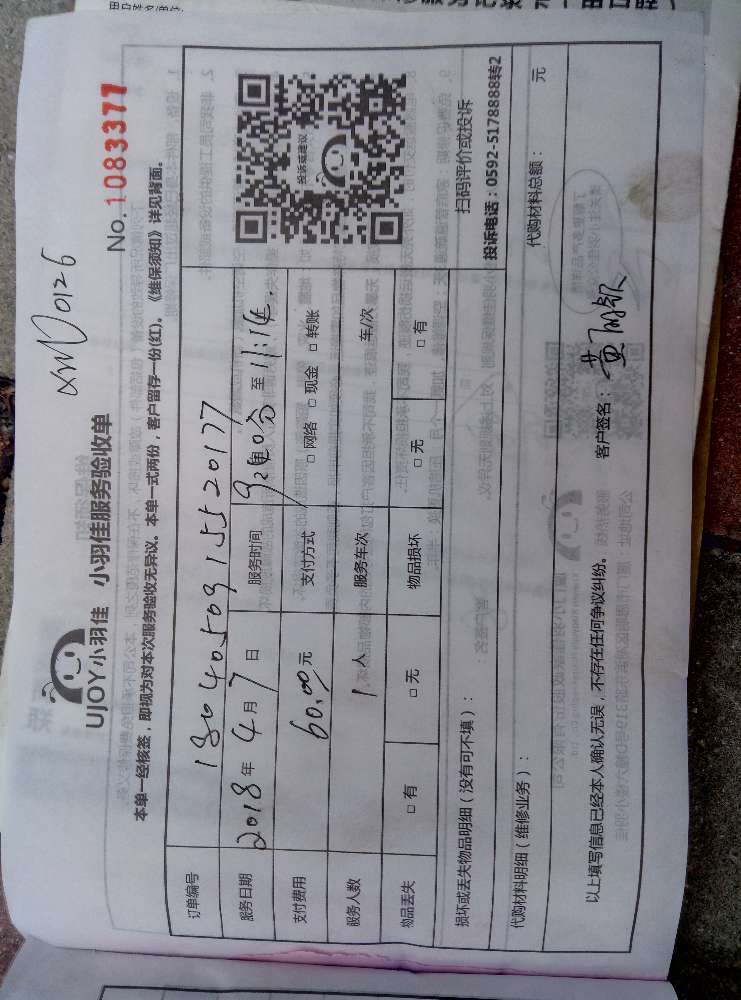 XMD0126
UJOY小羽佳 小羽佳服务验收单
No. 1083377
本单一经核签，即视为对本次服务验收无异议。本单一式两份，客户留存一份(红)。《维保须知》详见背面。
订单编号 1804050915520177
服务日期 2018 年 4 月 7 日 服务时间 至
支付费用 60.00 元 支付方式 □ 网络 □ 现金 □ 转账
服务人数 1 人 服务车次 车/次
物品丢失 □ 有 □ 无 物品损坏 □ 无 □ 有
投诉或建议
扫码评价或投诉
投诉电话：0592-5178888转2
损坏或丢失物品明细（没有可不填）：
代购材料明细（维修业务）： 代购材料总额： 元
以上填写信息已经本人确认无误，不存在任何争议纠纷。 客户签名：